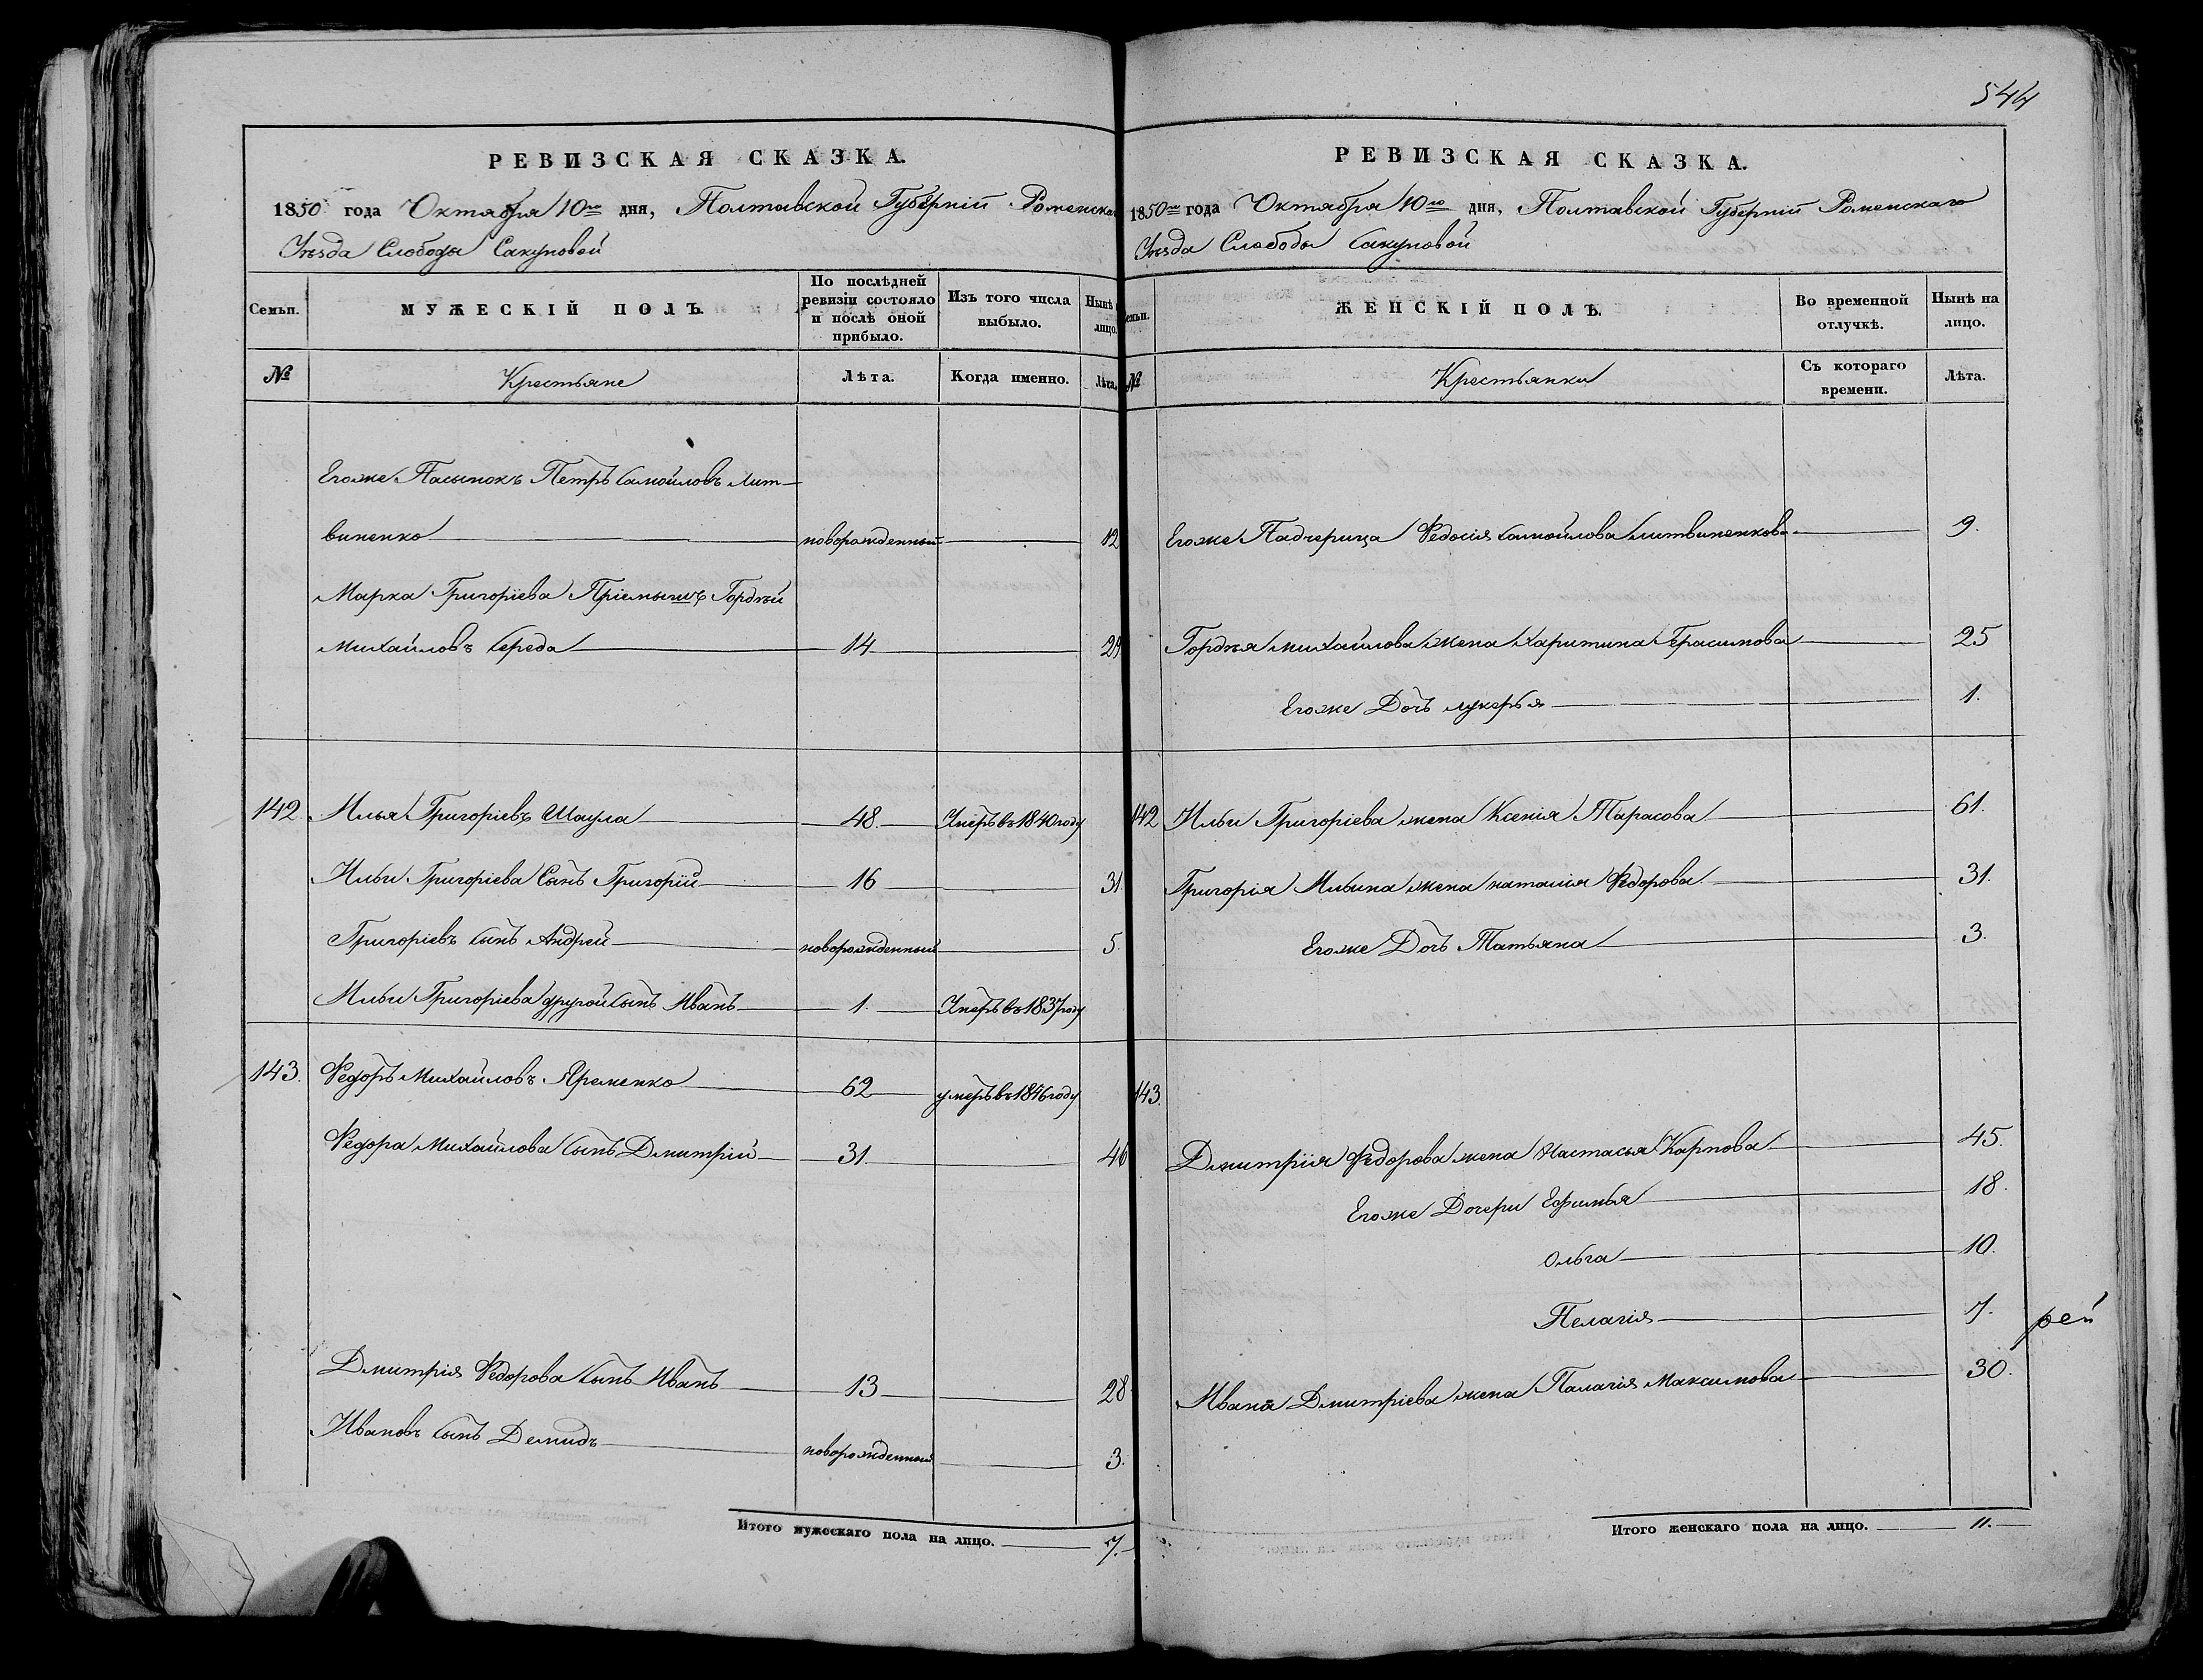 544
РЕВИЗСКАЯ СКАЗКА.
1850 года Октября 10го дня, Полтавской Губерніи Роменска
Уѣзда Слободы Сакуновой
Семьи.
МУЖЕСКІЙ ПОЛЪ.
По послѣдней ревизіи состояло и послѣ оной прибыло.
Изъ того числа выбыло.
Нынѣ лицо.
№
Крестьяне
Лѣта.
Когда именно.
Лѣта.
Егоже Пасынокъ Петръ Самойловъ Лит-
виненко новорожденный 12
Марка Григоріева Пріемышъ Гордѣй
Михайловъ Середа 14 29
142 Илья Григорьевъ Шаула 48 Умеръ въ 1840 году
Ильи Григоріева Сынъ Григорій 16 31.
Григоріевъ Сынъ Андрей новорожденный 5.
Ильи Григоріева другой Сынъ Иванъ 1. Умеръ въ 1837 году
143. Федоръ Михайловъ Яременко 62 умеръ въ 1846 году
Федора Михайлова Сынъ Дмитрій 31. 46
Дмитрія Федорова Сынъ Иванъ 13 28
Ивановъ Сынъ Демидъ новорожденный 3.
Итого мужескаго пола на лицо. 7.
РЕВИЗСКАЯ СКАЗКА.
1850го года Октября 10го дня, Полтавской Губерніи Роменскаго
Уѣзда Слободы Сакуновой
Семьи.
ЖЕНСКІЙ ПОЛЪ.
Во временной отлучкѣ.
Нынѣ на лицо.
№
Крестьянки
Съ котораго времени.
Лѣта.
Егоже Падчерица Федосія Самойлова Литвиненкова 9.
Гордѣя Михайлова жена Харитина Герасимова 25
Егоже Дочь Лукерья 1.
142 Ильи Григоріева жена Ксенія Тарасова 61.
Григорія Ильина жена Наталія Федорова. 31.
Егоже Дочь Татьяна 3.
143.
Дмитрія Федорова жена Настасья Карпова 45.
Егоже Дочери Ефимья 18.
Ольга 10.
Пелагія 7.
рей
Ивана Дмитріева жена Палагія Максимова 30.
Итого женскаго пола на лицо. 11.